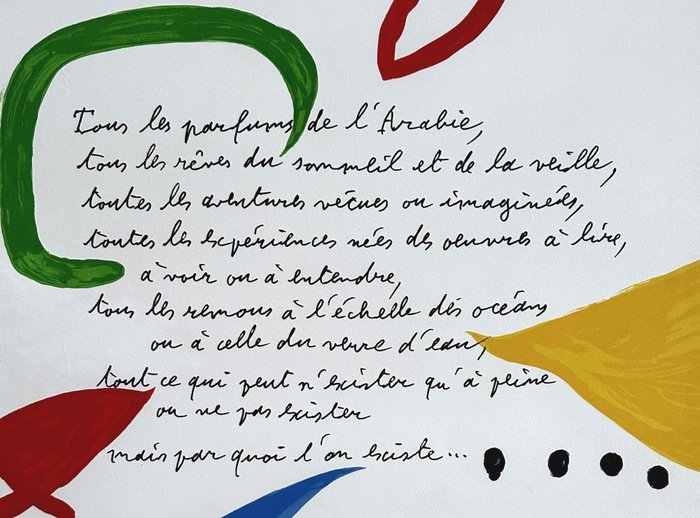 Tous les parfums de l'Arabie,
tous les rêves du sommeil et de la veille,
toutes les aventures vécues ou imaginées,
toutes les expériences nées des oeuvres à lire,
à voir ou à entendre,
tous les remous à l'échelle des océans
ou à celle du verre d'eau,
tout ce qui peut n'exister qu'à peine
ou ne pas exister
mais par quoi l'on existe...